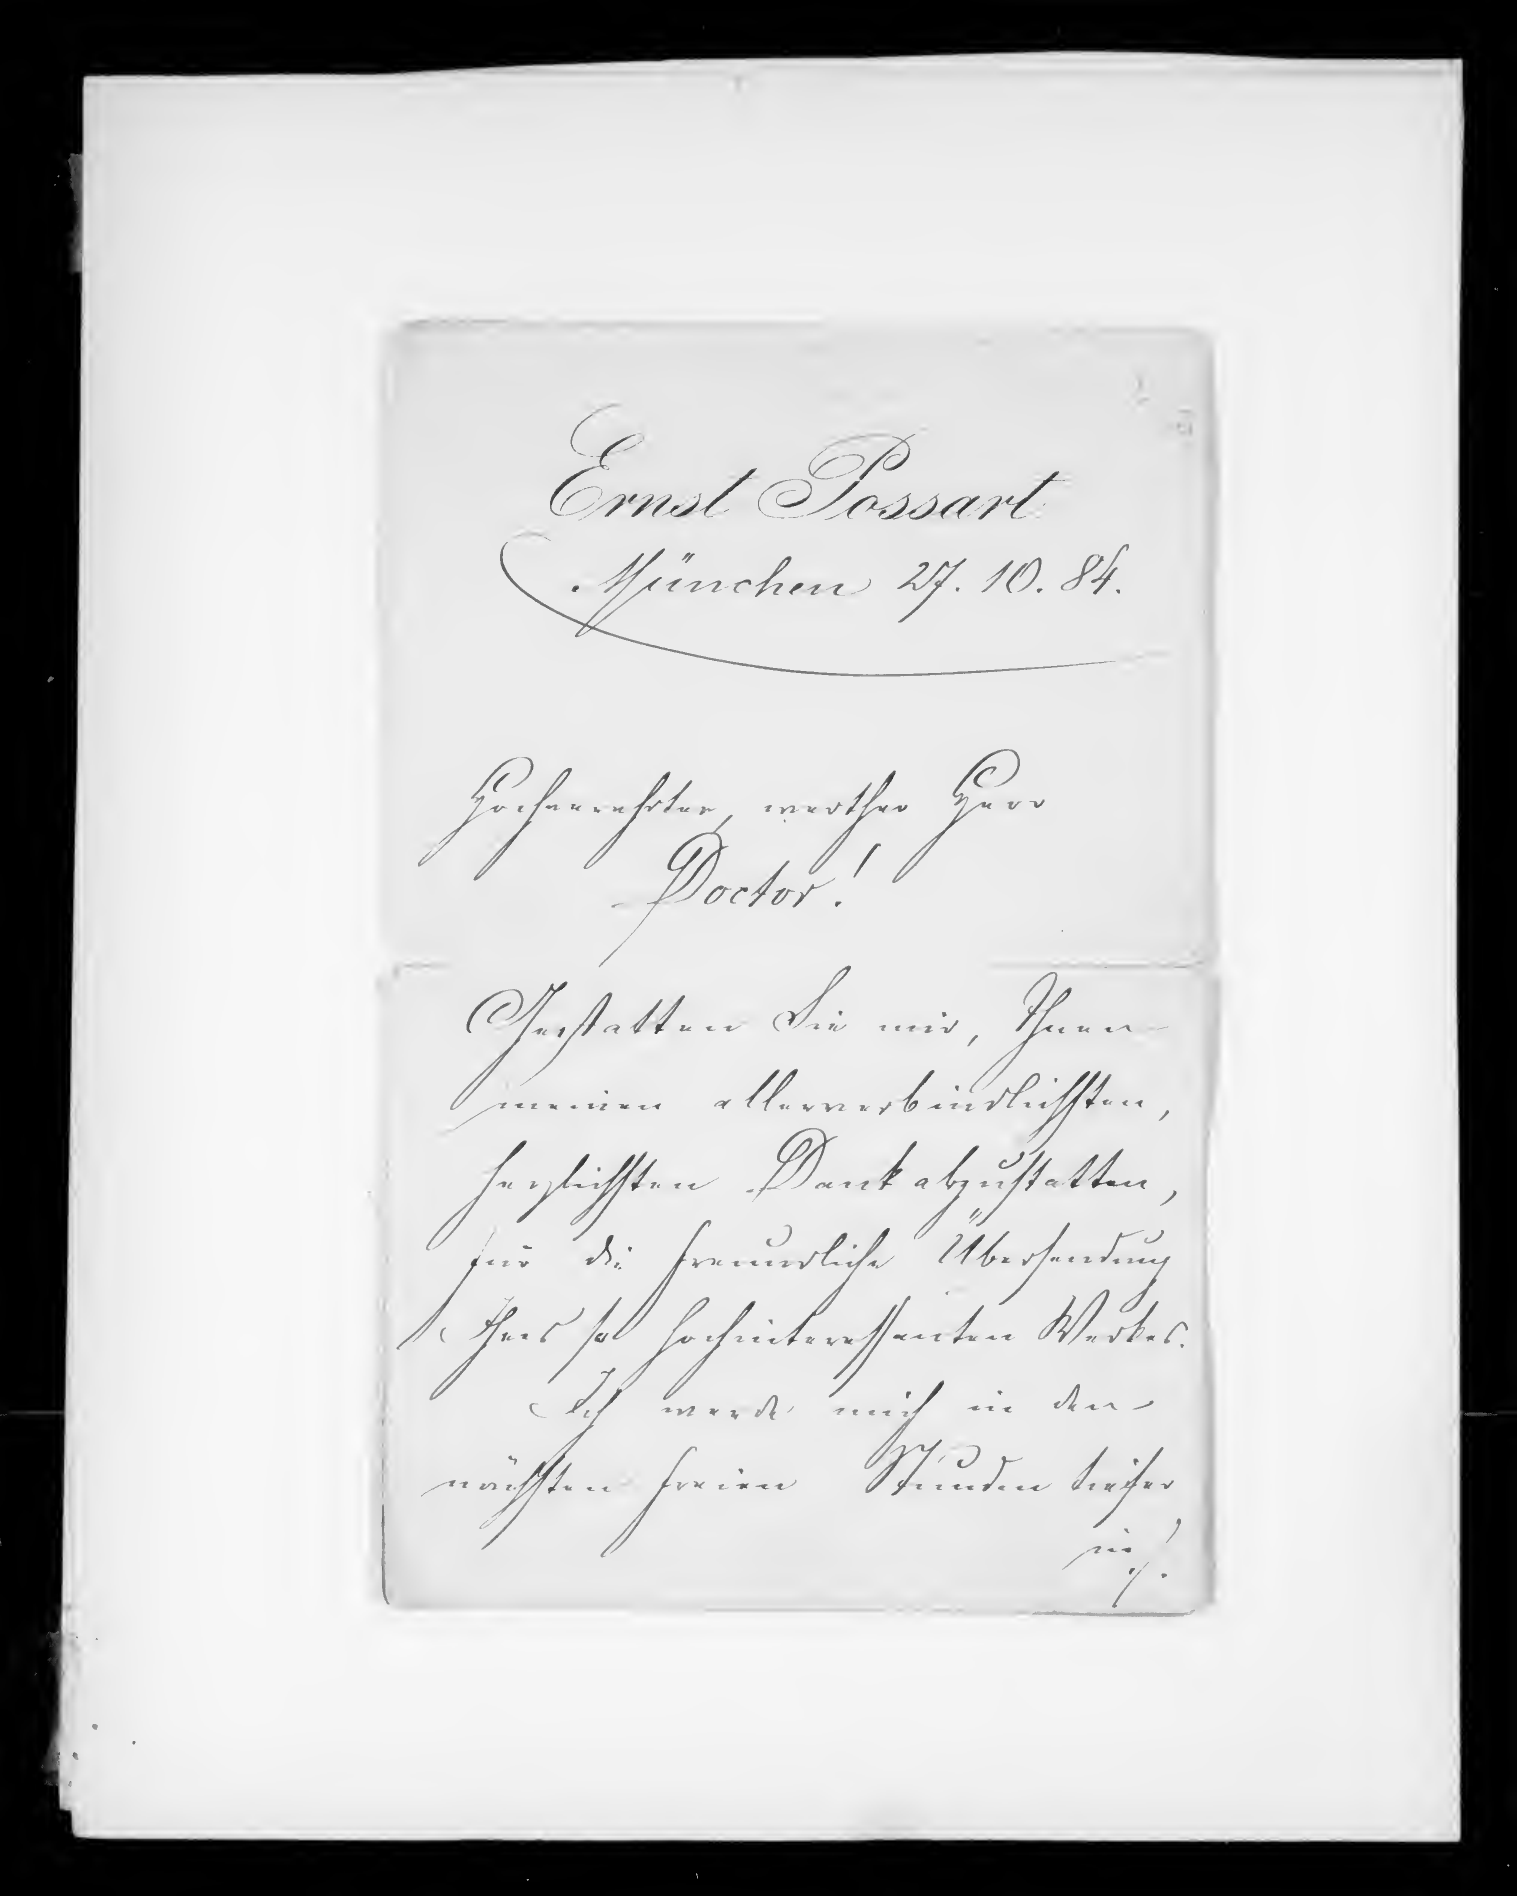 Ernst Possart
München 27. 10. 84.
Hochverehrter, werther Herr
Doctor!
Gestatten Sie mir, Ihnen
meinen allerverbindlichsten,
herzlichsten Dank abzustatten,
für die freundliche Übersendung
Ihres so hochinteressanten Werkes.
Ich werde mich in den
nächsten freien Stunden tiefer
in